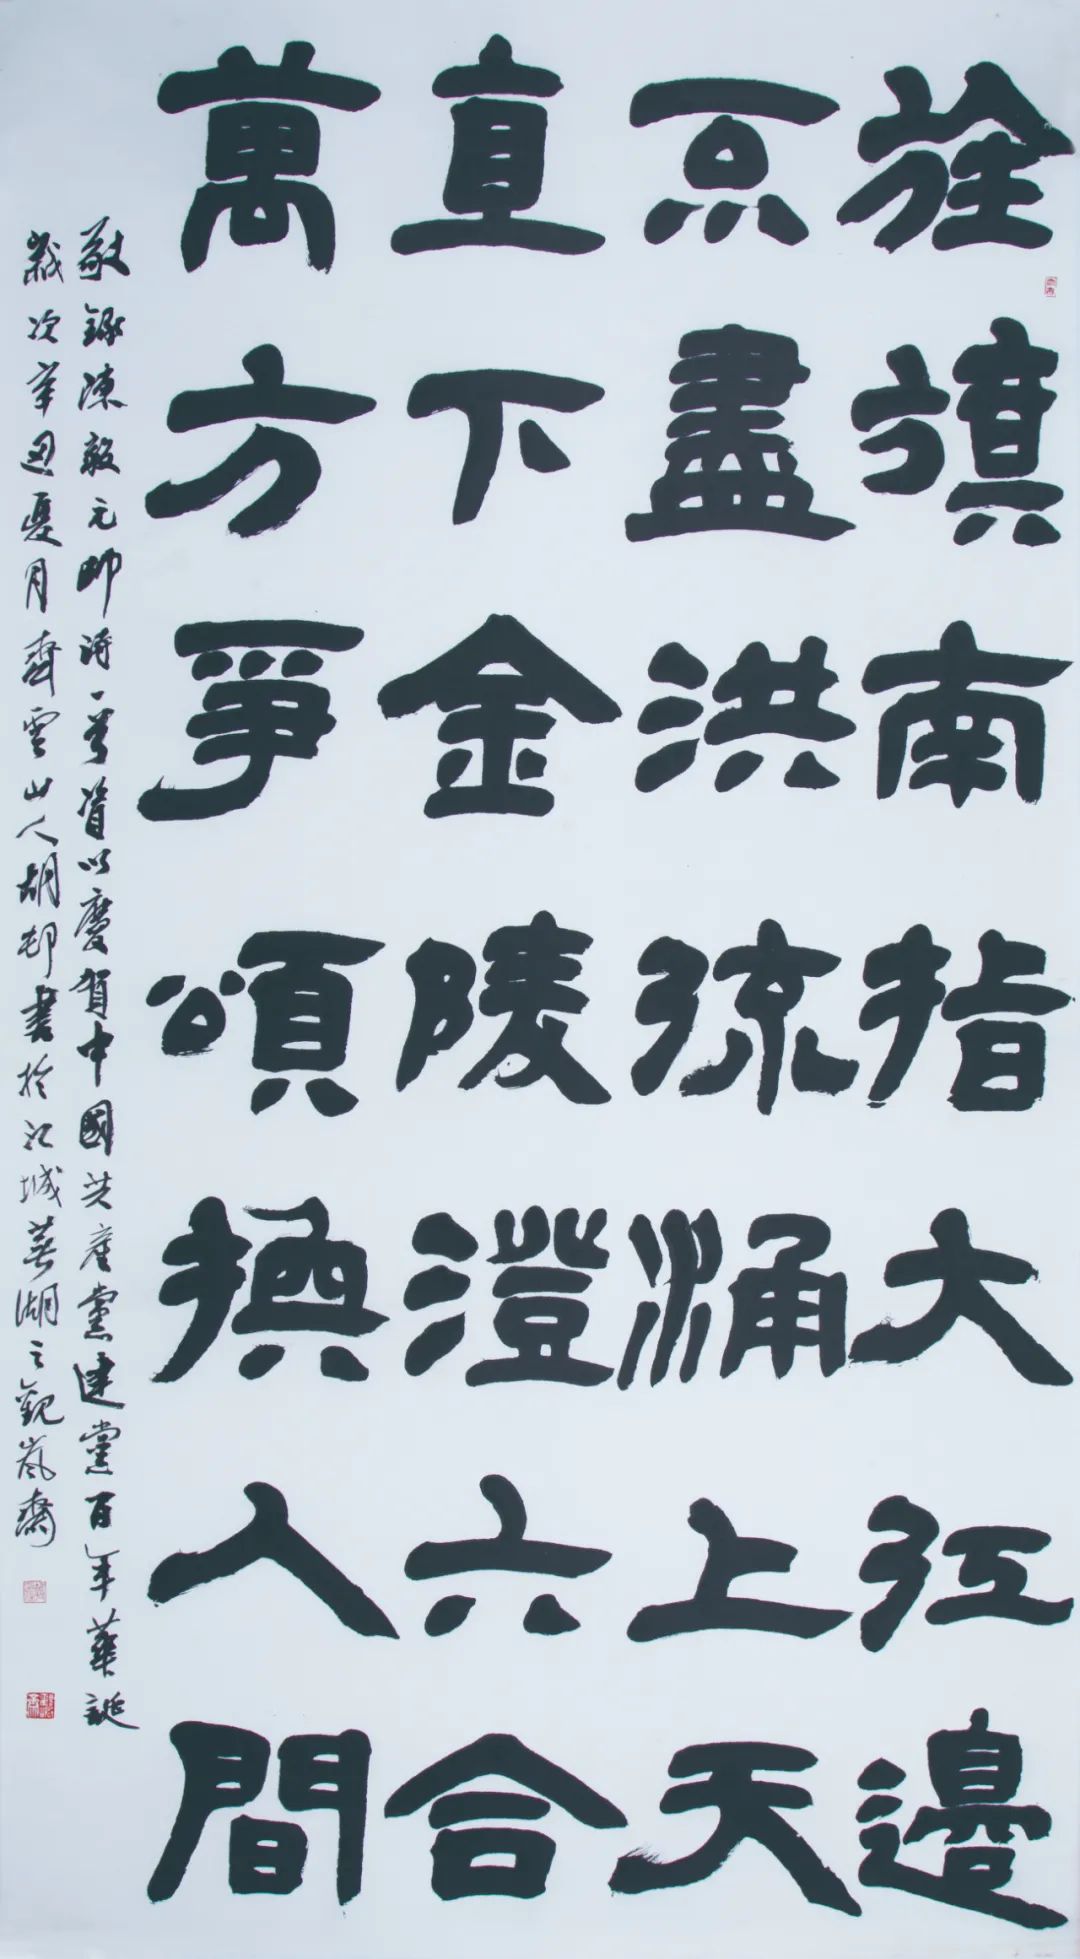 旌旗南指大江邊
不盡洪流涌上天
直下金陵澄六合
萬方爭頌換人間
敬錄陳毅元帥詩一首以慶賀中國共產黨建黨百年華誕
歲次辛丑夏月齊雲山人胡邨書於江城蕪湖之觀嵐齋